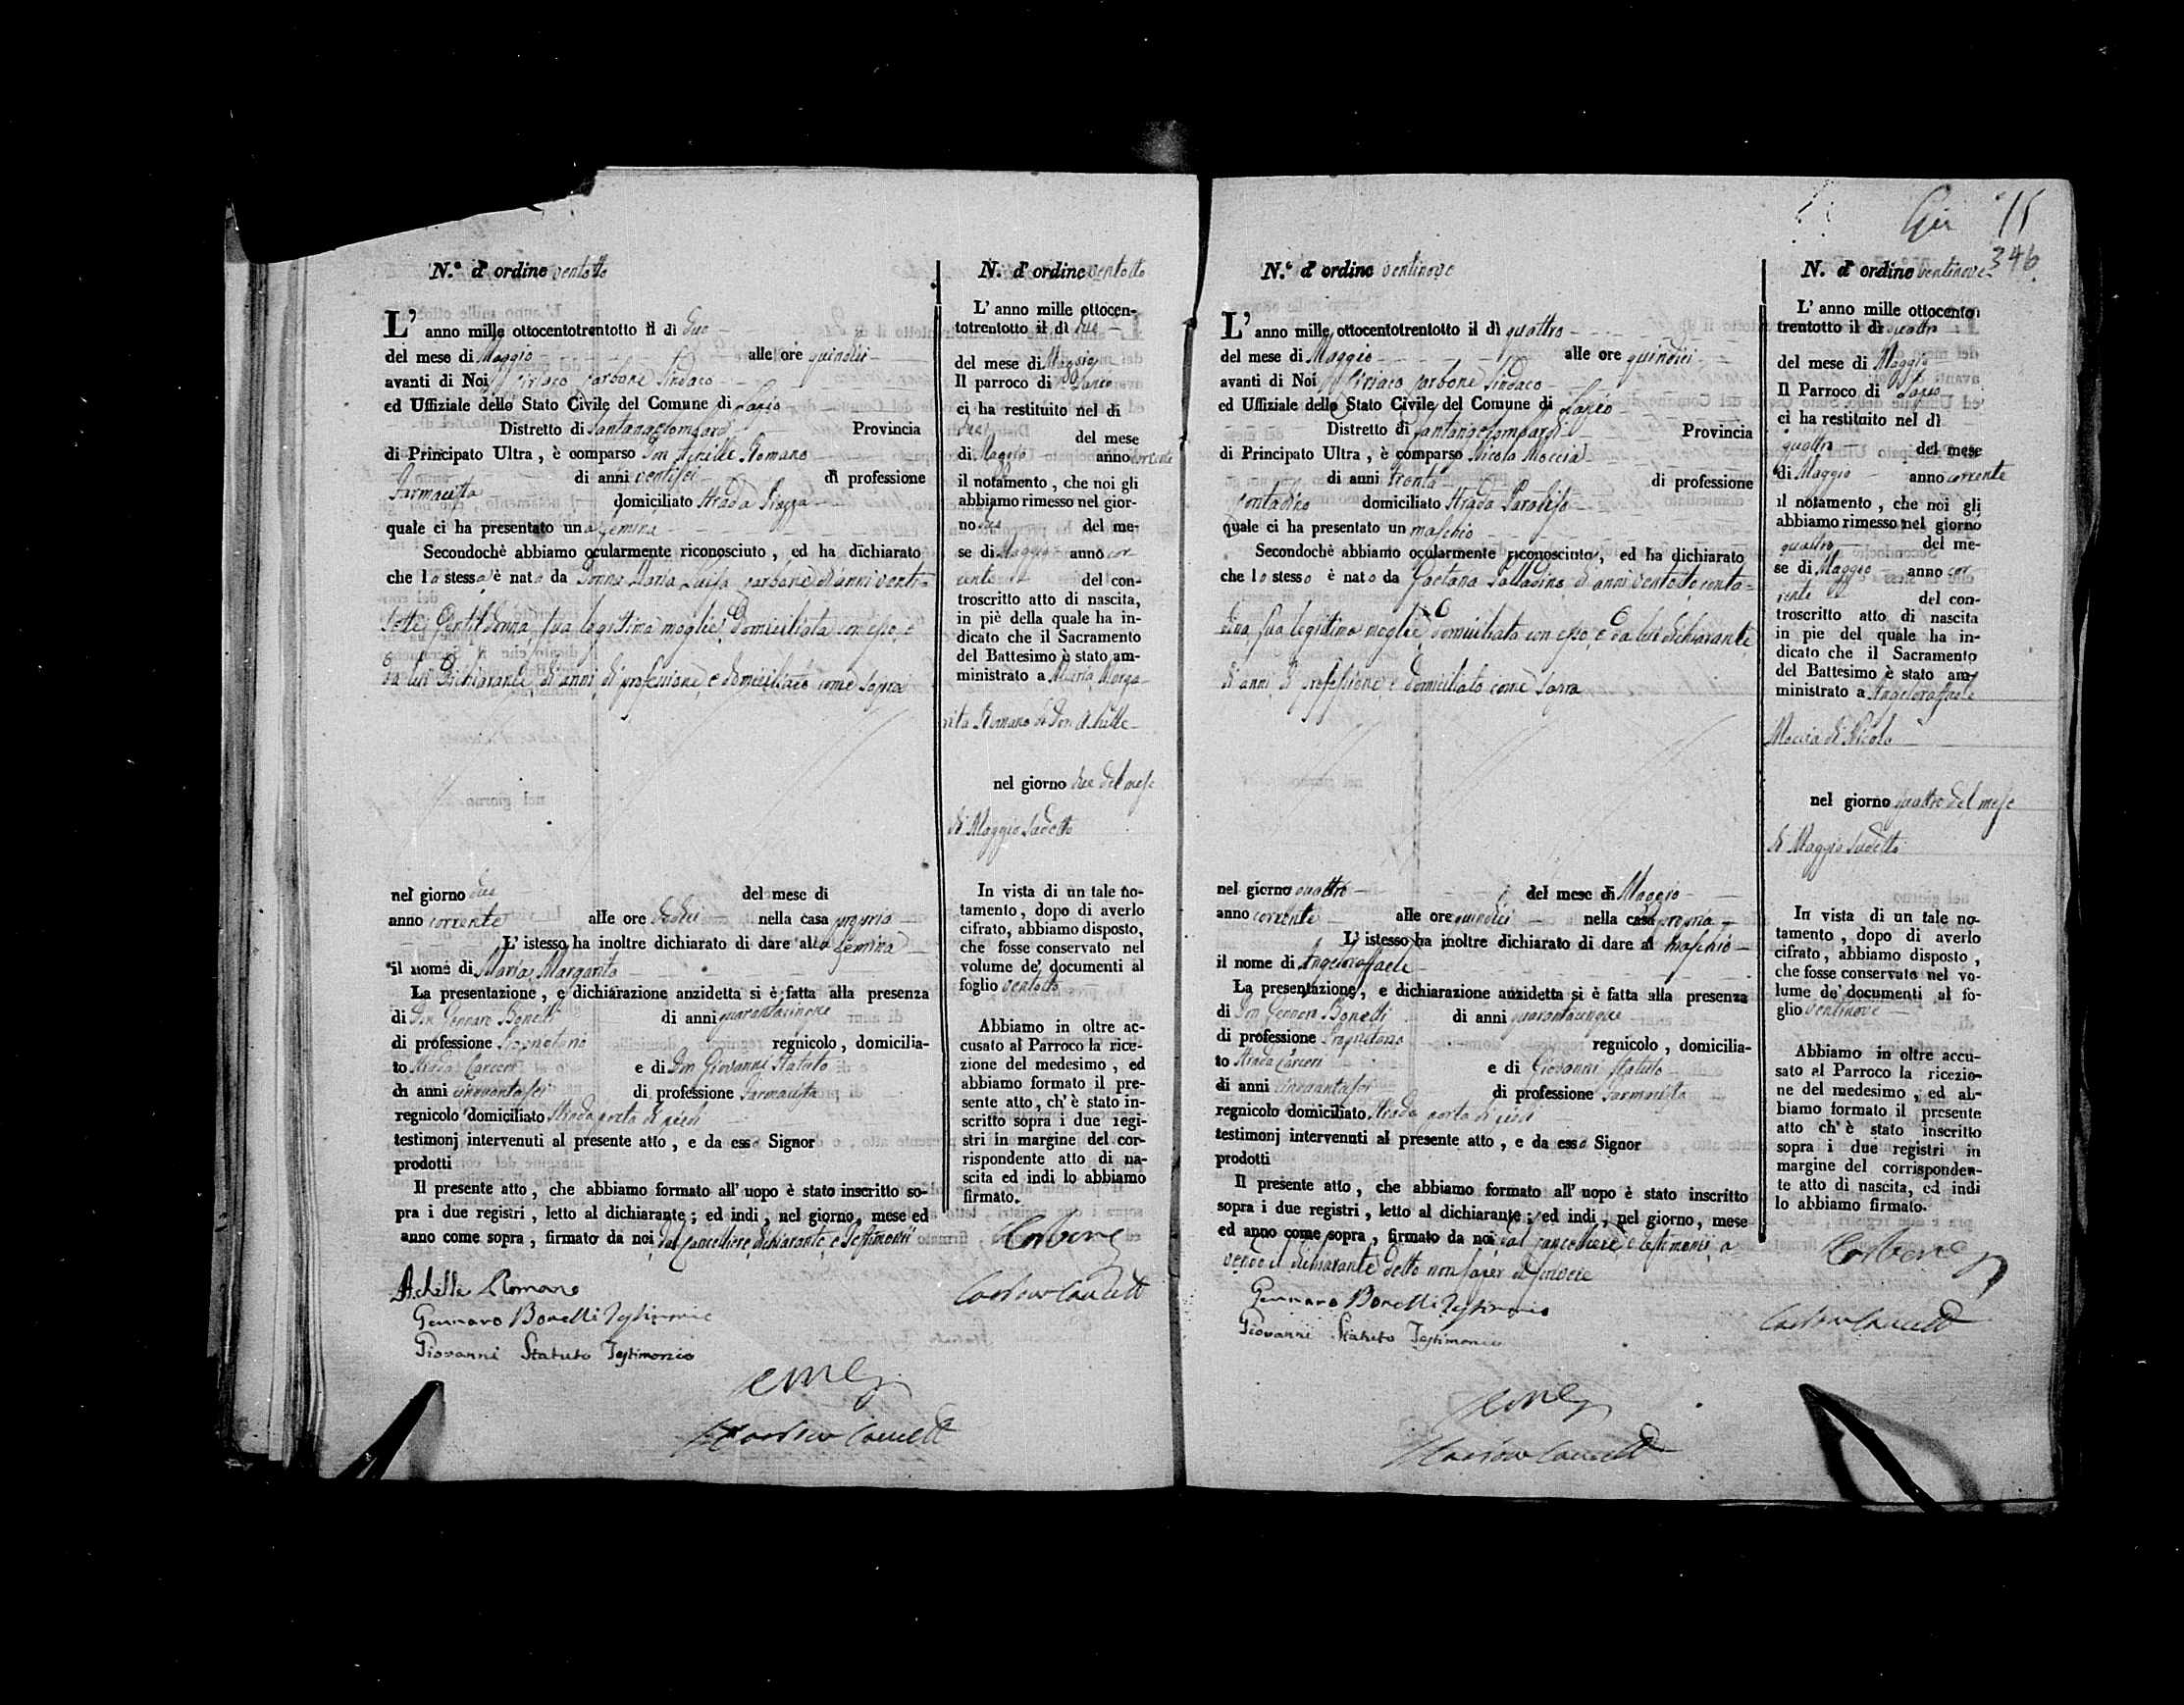 N.° d' ordine ventotto
L' anno mille ottocentotrentotto il dì due
del mese di Maggio alle ore quindici
avanti di Noi Ciriaco Carbone Sindaco
ed Uffiziale dello Stato Civile del Comune di Lapio
Distretto di Santangelombardi Provincia
di Principato Ultra , è comparso Don Achille Romano
di anni ventisei di professione
Farmacista domiciliato Strada Piazza
quale ci ha presentato una femina
Secondochè abbiamo ocularmente riconosciuto , ed ha dichiarato
che lo stesso è nato da Donna Maria Luisa Carbone di anni venti
sette Gentildonna sua legittima moglie domiciliata con esso, e
da lui Dichiarante di anni di professione, e domiciliato come sopra
nel giorno due del mese di
anno corrente alle ore dodici nella casa propria
L' istesso ha inoltre dichiarato di dare alla femina
il nome di Maria Margarita
La presentazione , e dichiarazione anzidetta si è fatta alla presenza
di Don Gennaro Bonelli di anni quarantacinque
di professione Proprietario regnicolo , domicilia-
to Strada Carceri e di Don Giovanni Statuto
di anni cinquantasei di professione Farmacista
regnicolo domiciliato Strada porta di piedi
testimonj intervenuti al presente atto , e da esso Signor
prodotti
Il presente atto , che abbiamo formato all' uopo è stato inscritto so-
pra i due registri , letto al dichiarante ; ed indi , nel giorno, mese ed
anno come sopra , firmato da noi, dal Cancelliere, dichiarante, e testimonii
Achille Romano
Gennaro Bonelli Testimonio
Giovanni Statuto Testimonio
N. d' ordine ventotto
L' anno mille ottocen-
totrentotto il dì due
del mese di Maggio
Il parroco di Lapio
ci ha restituito nel dì
due del mese
di Maggio anno corrente
il notamento , che noi gli
abbiamo rimesso nel gior-
no due del me-
se di Maggio anno cor
rente del con-
troscritto atto di nascita,
in piè della quale ha in-
dicato che il Sacramento
del Battesimo è stato am-
ministrato a Maria Marga
rita Romano di Don Achille
nel giorno due del mese
di Maggio sudetto
In vista di un tale no-
tamento , dopo di averlo
cifrato, abbiamo disposto,
che fosse conservato nel
volume de' documenti al
foglio ventotto
Abbiamo in oltre ac-
cusato al Parroco la rice-
zione del medesimo , ed
abbiamo formato il pre-
sente atto , ch' è stato in-
scritto sopra i due regi-
stri in margine del cor-
rispondente atto di na-
scita ed indi lo abbiamo
firmato.
Carbone
15
346
N.° d' ordine ventinove
L' anno mille ottocentotrentotto il dì quattro
del mese di Maggio alle ore quindici
avanti di Noi Ciriaco Carbone Sindaco
ed Uffiziale dello Stato Civile del Comune di Lapio
Distretto di Santangelombardi Provincia
di Principato Ultra , è comparso Nicola Moccia
di anni trenta di professione
Contadino domiciliato Strada Paradiso
quale ci ha presentato un maschio
Secondochè abbiamo ocularmente riconosciuto , ed ha dichiarato
che lo stesso è nato da Gaetana Palladino di anni ventotto conta-
dina sua legittima moglie domiciliata con esso, e da lui dichiarante
di anni di professione e domiciliato come sopra
nel giorno quattro del mese di Maggio
anno corrente alle ore quindici nella casa propria
L' istesso ha inoltre dichiarato di dare al maschio
il nome di Angeloraffaele
La presentazione , e dichiarazione anzidetta si è fatta alla presenza
di Don Gennaro Bonelli di anni quarantacinque
di professione Proprietario regnicolo , domicilia-
to Strada Carceri e di Giovanni Statuto
di anni cinquantasei di professione Farmacista
regnicolo domiciliato Strada porta di piedi
testimonj intervenuti al presente atto , e da esso Signor
prodotti
Il presente atto , che abbiamo formato all' uopo è stato inscritto
sopra i due registri , letto al dichiarante ; ed indi , nel giorno, mese
ed anno come sopra , firmato da noi, dal Cancelliere, e testimonii a
vendo il dichiarante detto non saper scrivere
Gennaro Bonelli Testimonio
Giovanni Statuto Testimonio
N. d' ordine ventinove
L' anno mille ottocento
trentotto il dì quattro
del mese di Maggio
Il Parroco di Lapio
ci ha restituito nel dì
quattro del mese
di Maggio anno corrente
il notamento , che noi gli
abbiamo rimesso nel giorno
quattro del me-
se di Maggio anno cor
rente del con-
troscritto atto di nascita
in pie del quale ha in-
dicato che il Sacramento
del Battesimo è stato am-
ministrato a Angeloraffaele
Moccia di Nicola
nel giorno quattro del mese
di Maggio sudetto
In vista di un tale no-
tamento , dopo di averlo
cifrato , abbiamo disposto ,
che fosse conservato nel vo-
lume de' documenti al fo-
glio ventinove
Abbiamo in oltre accu-
sato al Parroco la ricezio-
ne del medesimo , ed ab-
biamo formato il presente
atto ch' è stato inscritto
sopra i due registri in
margine del corrisponden-
te atto di nascita, ed indi
lo abbiamo firmato.
Carbone